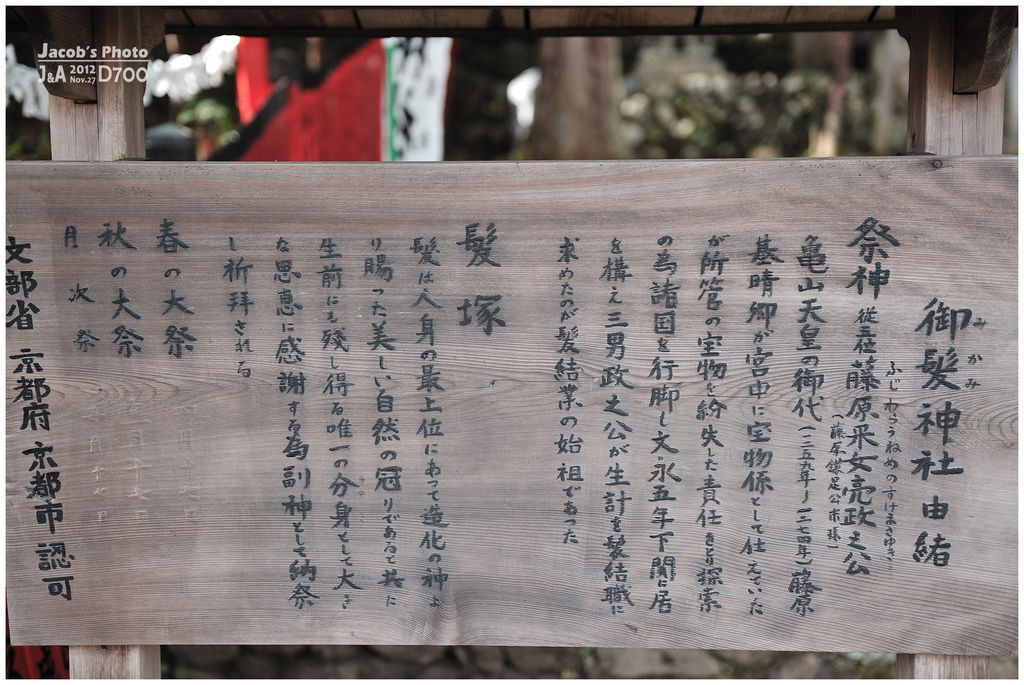 Jacob's Photo
J&A 2012 Nov.27 D700
御髪神社 由緒
みかみ
ふじわらうねめのすけまさゆき
祭神 従五位 藤原采女亮政之公
(藤原鎌足公末孫)
亀山天皇の御代(一二五九年〜一二七四年)藤原
基晴卿が宮中に宝物係として仕えていた
が所管の宝物を紛失した責任をとり探索
の為諸国を行脚し文永五年下関に居
を構え三男政之公が生計を髪結職に
求めたのが髪結業の始祖であった
髪塚
髪は人身の最上位にあって造化の神よ
り賜った美しい自然の冠りであると共に
生前にも残し得る唯一の分身として大き
な恩恵に感謝する為副神として納祭
し祈拝される
春の大祭
秋の大祭
月次祭
文部省 京都府 京都市 認可